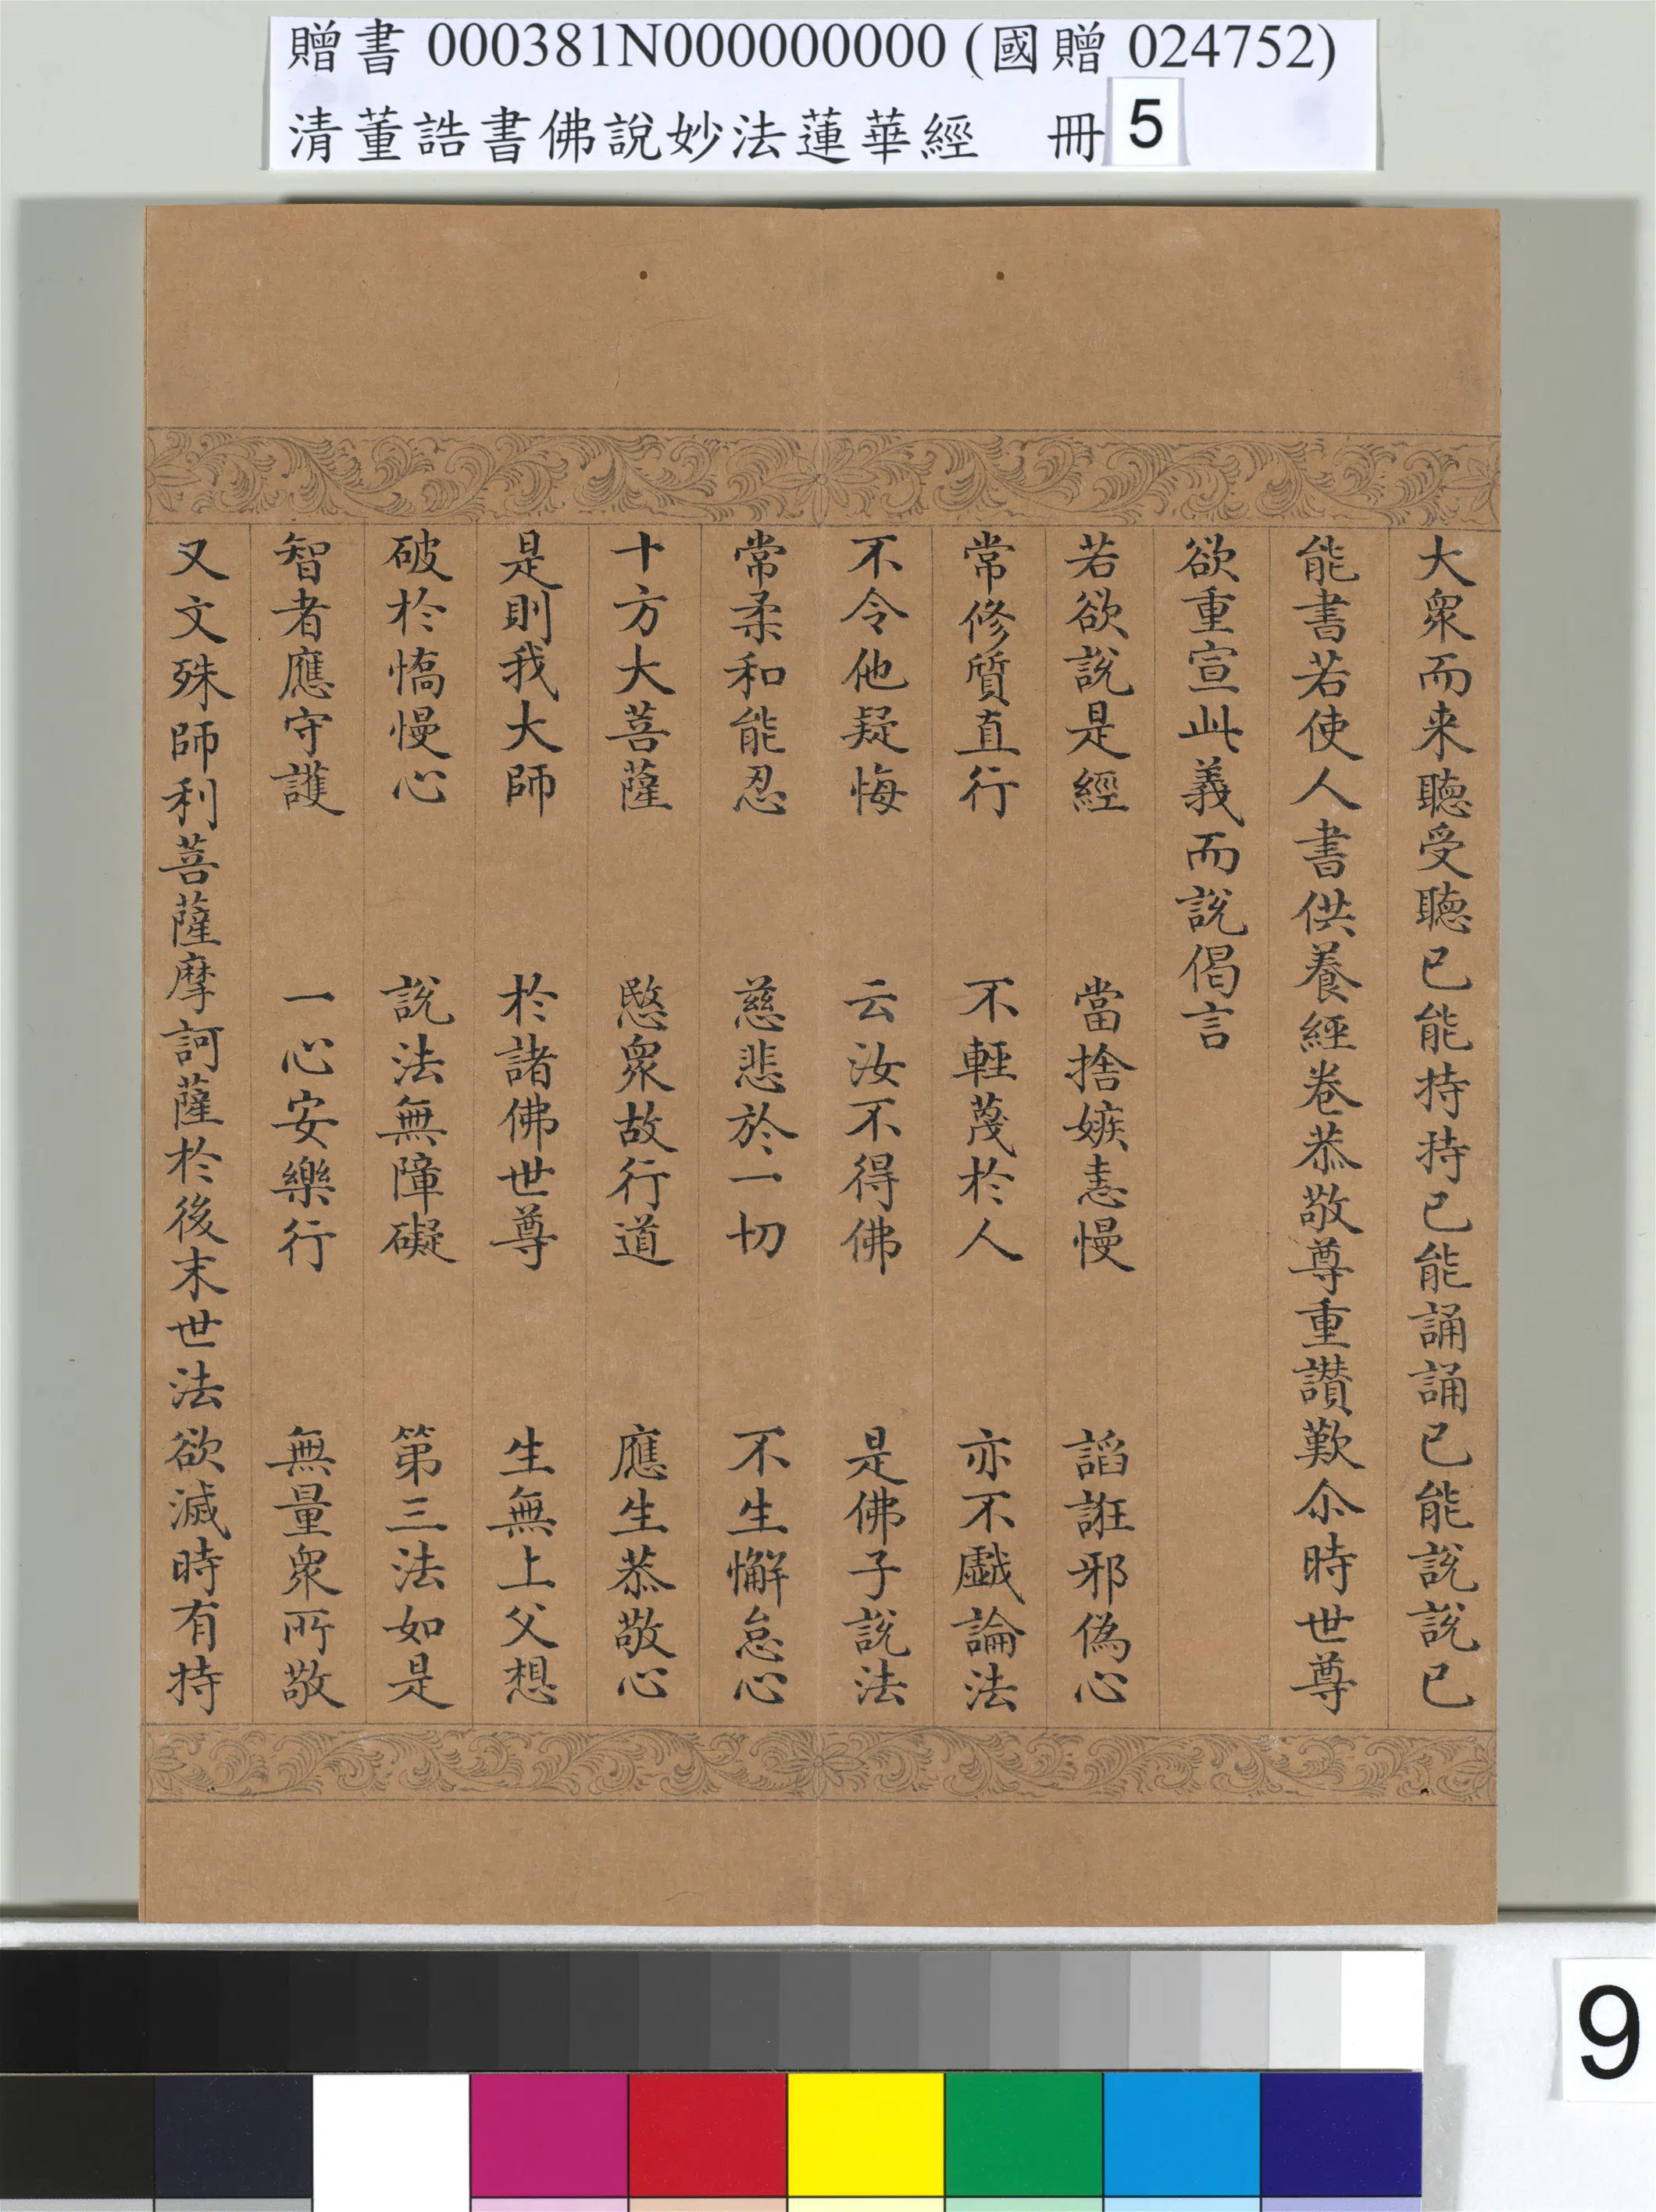 贈書 000381N000000000 (國贈 024752)
清董誥書佛說妙法蓮華經 冊 5
大衆而来聽受聽已能持持已能誦誦已能說說已
能書若使人書供養經卷恭敬尊重讃歎尒時世尊
欲重宣此義而說偈言
若欲說是經 當捨嫉恚慢 謟誑邪偽心
常修質直行 不輕蔑於人 亦不戲論法
不令他疑悔 云汝不得佛 是佛子說法
常柔和能忍 慈悲於一切 不生懈怠心
十方大菩薩 愍衆故行道 應生恭敬心
是則我大師 於諸佛世尊 生無上父想
破於憍慢心 說法無障礙 第三法如是
智者應守護 一心安樂行 無量衆所敬
又文殊師利菩薩摩訶薩於後末世法欲滅時有持
9